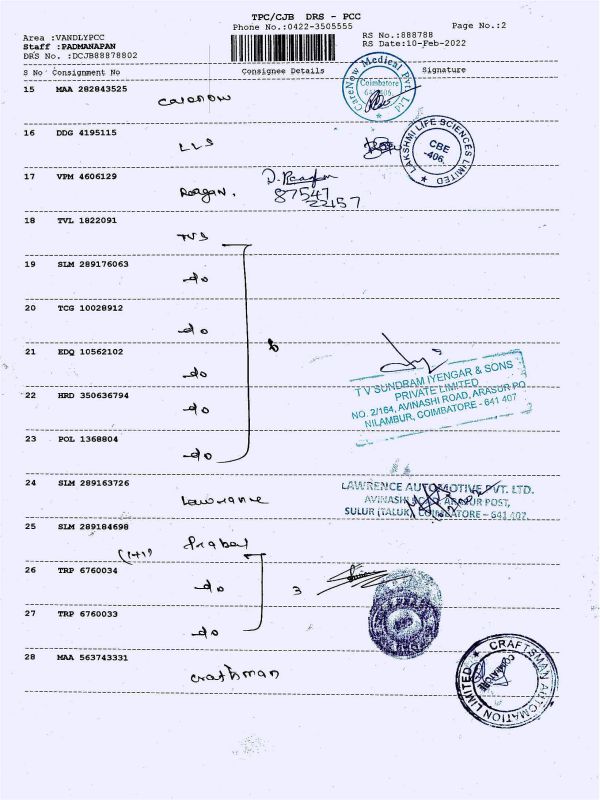 TPC/CJB DRS - PCC
Phone No.:0422-3505555
Page No.:2
Area :VANDLYPCC
RS No.:888788
Staff :PADMANAPAN
RS Date:10-Feb-2022
DRS No. :DCJB88878802
S No Consignment No Consignee Details Signature
15 MAA 282843525
carenow
CareNow Medical Pvt Ltd
Coimbatore
641406
16 DDG 4195115
LLS
LAKSHMI LIFE SCIENCES LIMITED
CBE
-406.
17 VPM 4606129
Reagan.
87547
22157
18 TVL 1822091
TVS
19 SLM 289176063
do
20 TCG 10028912
do
6
21 EDQ 10562102
do
T V SUNDRAM IYENGAR & SONS
PRIVATE LIMITED
NO. 2/164, AVINASHI ROAD, ARASUR PO
NILAMBUR, COIMBATORE - 641 407
22 HRD 350636794
do
23 POL 1368804
do
24 SLM 289163726
Lawrance
LAWRENCE AUTOMOTIVE PVT. LTD.
AVINASHI ROAD, ARASUR POST,
SULUR (TALUK), COIMBATORE - 641 407.
25 SLM 289184698
(1+1) Prabal
26 TRP 6760034
do
3
27 TRP 6760033
do
28 MAA 563743331
craftsman
CRAFTSMAN AUTOMATION LIMITED